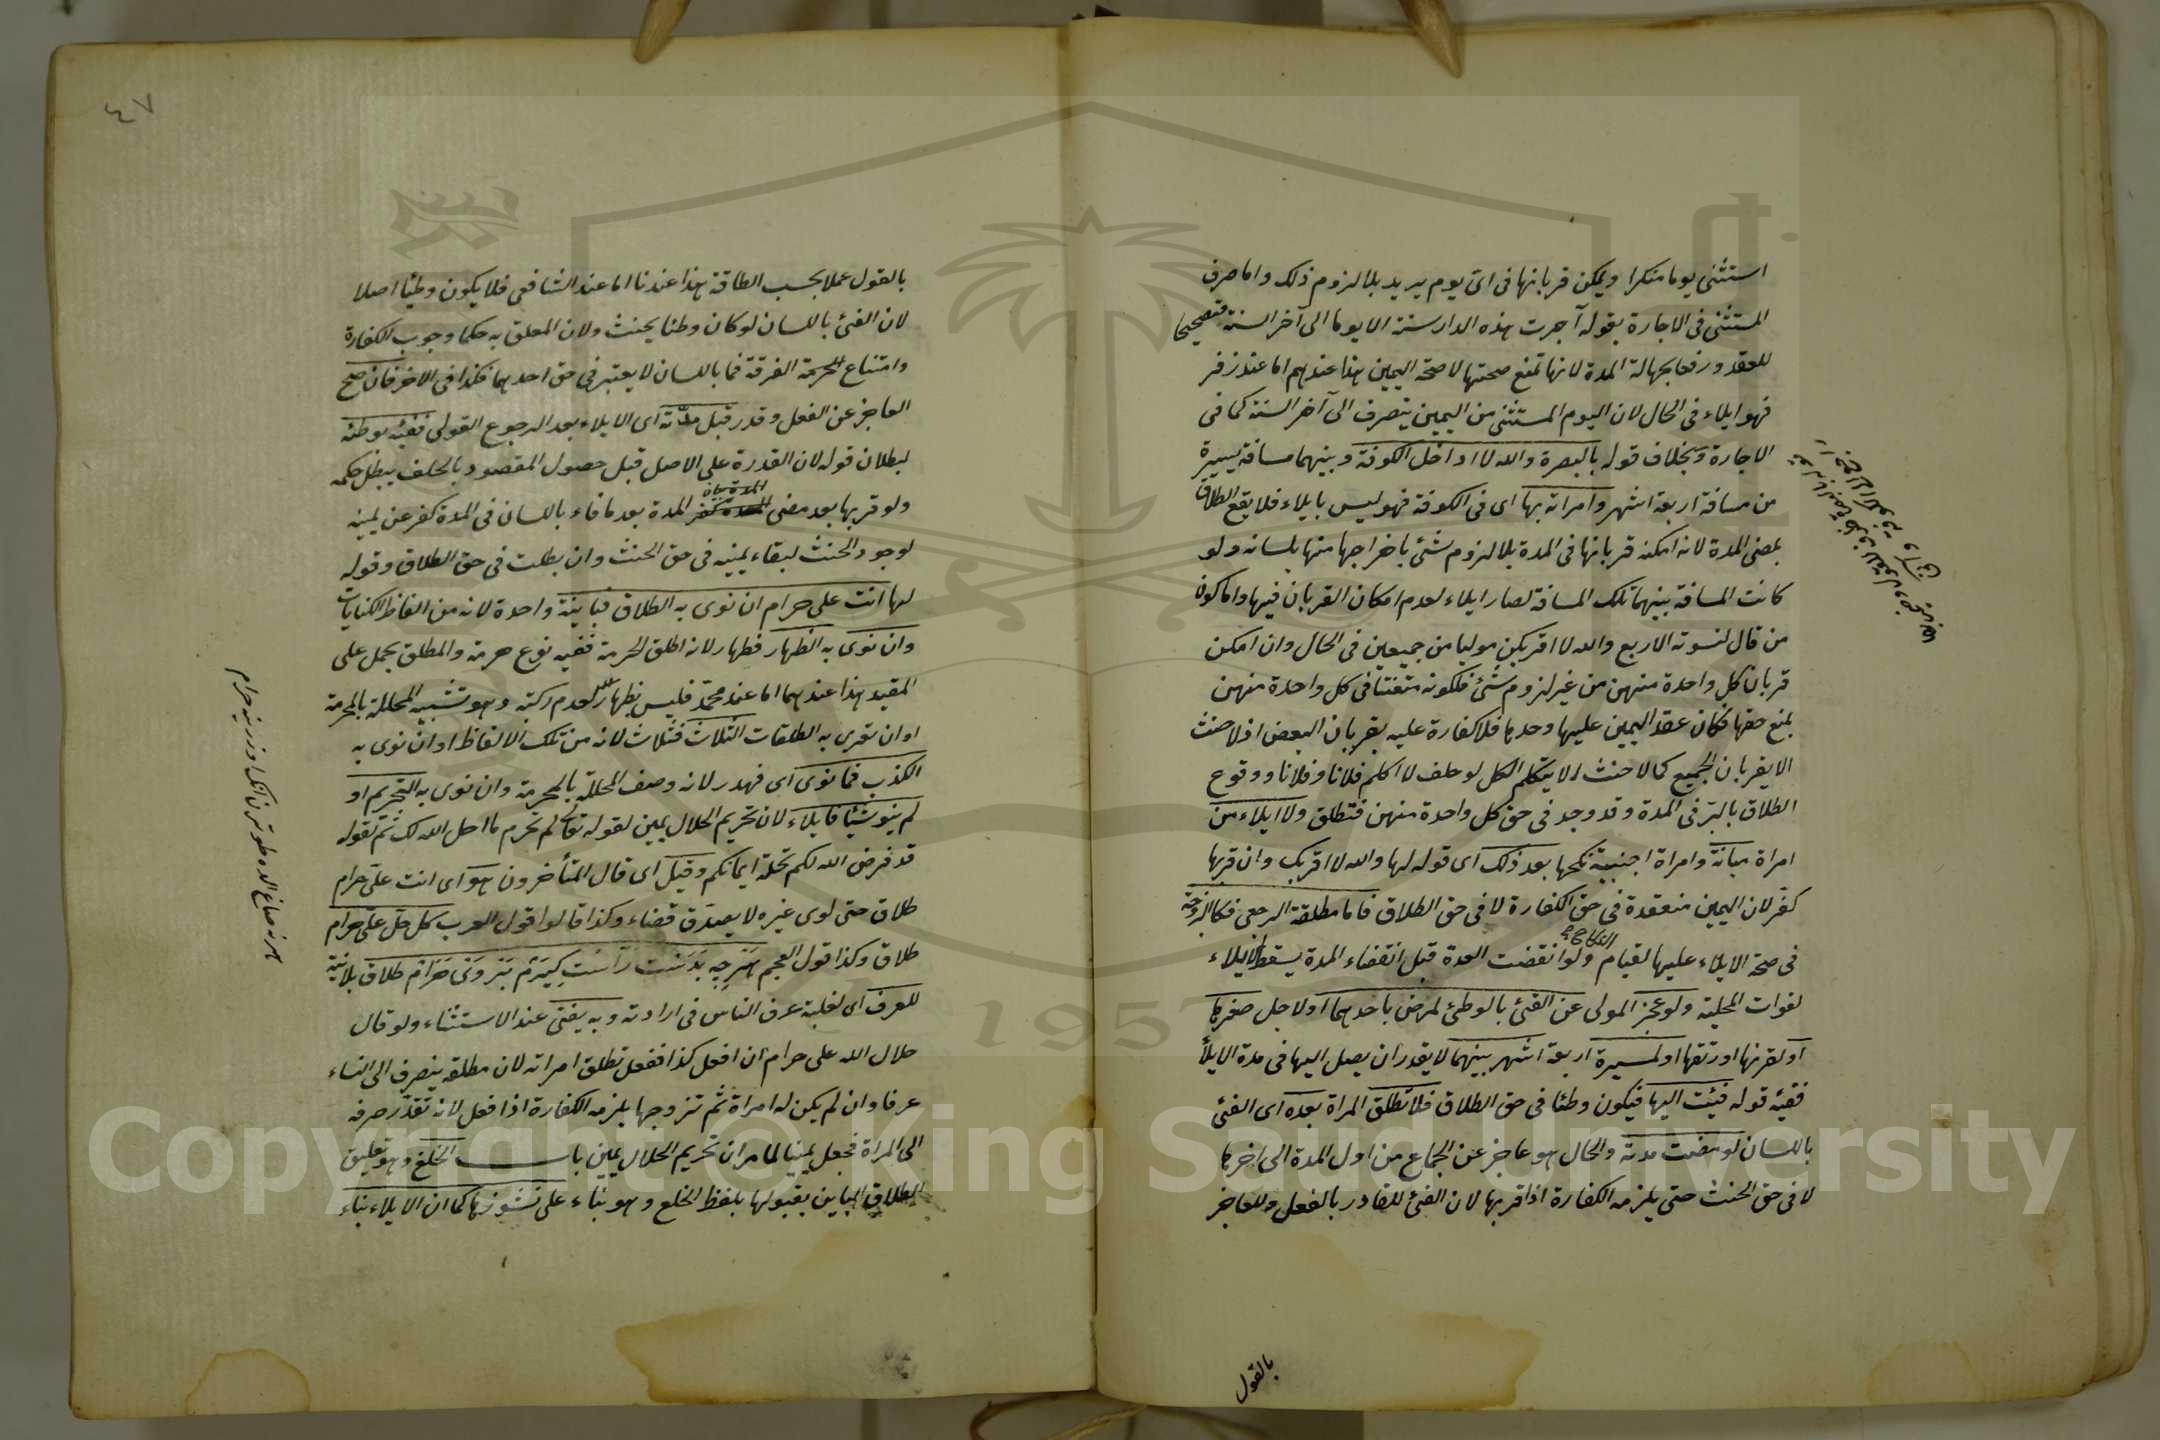 استثنى يوما منكرا ويمكن قربانها فى اى يوم يريد بلا لزوم ذلك واما صرف
المستثنى فى الاجارة بقوله آجرت هذه الدار سنة الا يوما الى آخر السنة فتصحيحا
للعقد ورفعا لجهالة المدة لانها تمنع صحتها لا صحة اليمين هذا عندهم اما عند زفر
فهو ايلاء فى الحال لان اليوم المستثنى من اليمين يتصرف الى آخر السنة كما فى
الاجارة وبخلاف قوله بالبصرة والله لا ادخل الكوفة وبينهما مسافة يسيرة
من مسافة اربعة اشهر وامراته بها اى فى الكوفة فهو ليس بايلاء فلا يقع الطلاق
بمضى المدة لانه امكنه قربانها فى المدة بلا لزوم شئ باخراجها منها بلسانه ولو
كانت المسافة بينهما تلك المسافة لصار ايلاء لعدم امكان القربان فيها واما كون
من قال لنسوته الاربع والله لا اقربكن موليا من جميعهن فى الحال وان امكن
قربان كل واحدة منهن من غير لزوم شئ فلكونه متعنتا فى كل واحدة منهن
بمنع حقها فكان عقد اليمين عليها وحدها فلا كفارة عليه بقربان البعض اذ لا حنث
الا بقربان الجميع كما لا حنث الا بتكلم الكل لو حلف لا اكلم فلانا وفلانا ووقوع
الطلاق بالبر فى المدة وقد وجد فى حق كل واحدة منهن فتطلق ولا ايلاء من
امراة مبانة وامراة اجنبية نكحها بعد ذلك اى قوله لها والله لا اقربك وان قربها
كفر لان اليمين منعقدة فى حق الكفارة لا فى حق الطلاق فاما مطلقة الرجعى فكالزوجة
فى صحة الايلاء عليها لقيام النكاح ولو انقضت العدة قبل انقضاء المدة يسقط الايلاء
لفوات المحلية ولو عجز المولى عن الفئ بالوطئ لمرض باحدهما او لاجل صغرها
او لقرنها او رتقها او لمسيرة اربعة اشهر بينهما لا يقدر ان يصل اليها فى مدة الايلاء
ففيئه قوله فيئت اليها فيكون وطئا فى حق الطلاق فلا تطلق المراة بعده اى الفئ
باللسان لو مضت مدته والحال هو عاجز عن الجماع من اول المدة الى آخرها
لا فى حق الحنث حتى يلزمه الكفارة اذا قربها لان الفئ للقادر بالفعل وللعاجز
بالقول
٤٧
بالقول عملا بحسب الطاقة هذا عندنا اما عند الشافعى فلا يكون وطئا اصلا
لان الفئ باللسان لو كان وطئا يحنث ولان المعلق به حكما وجوب الكفارة
وامتناع الحرمة الفرقة فما باللسان لا يعتبر فى حق احدهما فكذا فى الاخر فان صح
العاجز عن الفعل وقدر قبل مدته اى الايلاء بعد الرجوع القولى ففيئه بوطئه
لبطلان قوله لان القدرة على الاصل قبل حصول المقصود بالخلف يبطل حكمه
ولو قربها بعد مضى المدة بعد ما فاء باللسان فى المدة كفر عن يمينه
لوجود الحنث لبقاء يمينه فى حق الحنث وان بطلت فى حق الطلاق وقوله
لها انت على حرام ان نوى به الطلاق فباينة واحدة لانه من الفاظ الكنايات
وان نوى به الظهار فظهار لانه اطلق الحرمة ففيه نوع حرمة والمطلق يحمل على
المقيد هذا عندهما اما عند محمد فليس بظهار لعدم ركنه وهو تشبيه المحللة بالمحرمة
او ان نوى به الطلقات الثلاث فثلاث لانه من تلك الالفاظ او ان نوى به
الكذب فما نوى اى فهدر لانه وصف المحللة بالمحرمة وان نوى به التحريم او
لم ينو شيئا فايلاء لان تحريم الحلال يمين لقوله تعالى لم تحرم ما احل الله لك ثم قوله
قد فرض الله لكم تحلة ايمانكم وقيل اى قال المتأخرون هو اى انت على حرام
طلاق حتى لو نوى غيره لا يصدق قضاء وكذا قالوا قول العرب كل حل على حرام
طلاق وكذا قول العجم هرچه بدست راست گیرم بر من حرام طلاق بلا نية
للعرف اى لغلبة عرف الناس فى ارادته وبه يفتى عند الاستثناء ولو قال
حلال الله على حرام ان افعل كذا ففعل تطلق امراته لان مطلقه ينصرف الى النساء
عرفا وان لم يكن له امراة ثم تزوجها يلزمه الكفارة اذا فعل لانه تعذر صرفه
الى المراة فجعل يمينا لما مر ان تحريم الحلال يمين باب الخلع وهو تعليق
الطلاق الباين بقبولها بلفظ الخلع وهو بناء على نشوزها كما ان الايلاء بناء
Copyright © King Saud University
1957